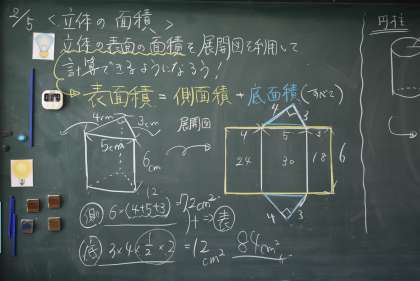 2/5 <立体の面積>
立体の表面の面積を展開図を利用して
計算できるようになろう!
表面積=側面積+底面積(すべて)
4cm 3cm
5cm
6cm
展開図
4 3
4 5 3
24 30 18 6
4 3
(12)
側 6×(4+5+3)=72cm²
⇒表
底 3×4×1/2×2=12cm² 84cm²
円柱